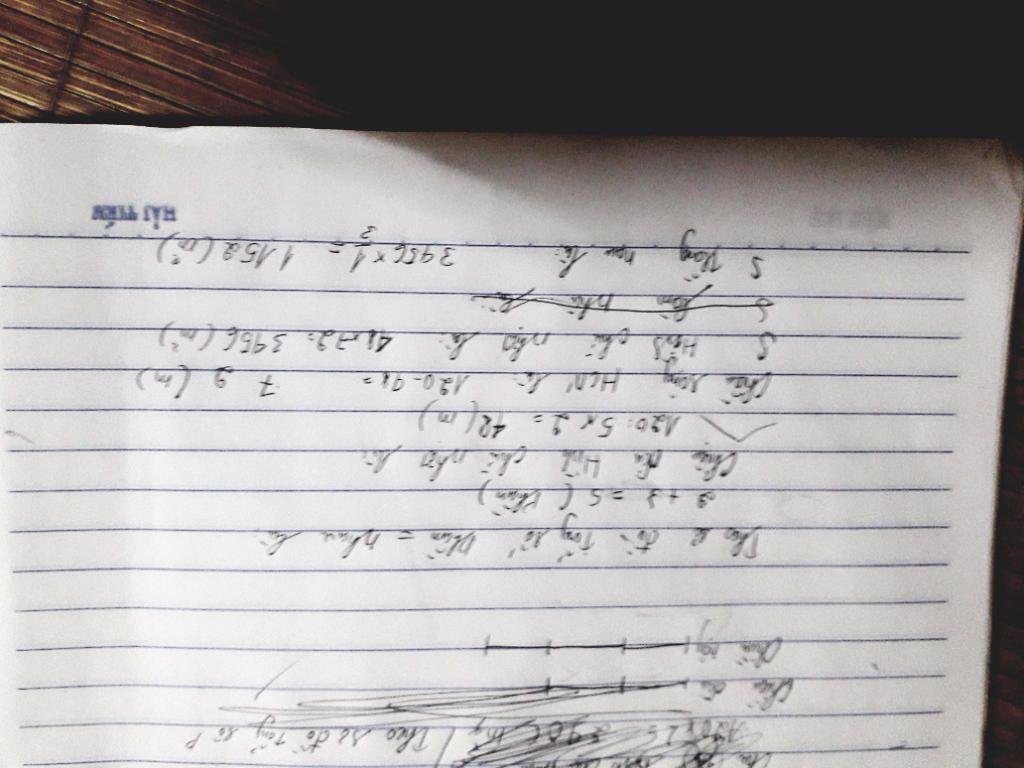 Theo sơ đồ tổng số P
Chiều dài
Chiều rộng
Theo sơ đồ tổng số phần = nhau là:
2 + 3 = 5 ( phần )
Chiều dài Hình chữ nhật là:
120 : 5 x 2 = 48 ( m )
Chiều rộng HCN là: 120 - 48 = 72 ( m )
S Hình chữ nhật là: 48 x 72 = 3456 ( m² )
S là:
S rau là: 3456 x 1/3 = 1152 ( m² )
HẢI TIẾN